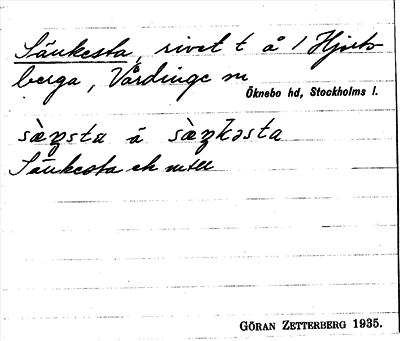 Sänkesta, rivet t å 1 Hjorts-
berga, Vårdinge sn
Öknebo hd, Stockholms l.
sæ̀ŋsta å sæ̀ŋkəsta
Sänkesta ek
GÖRAN ZETTERBERG 1935.